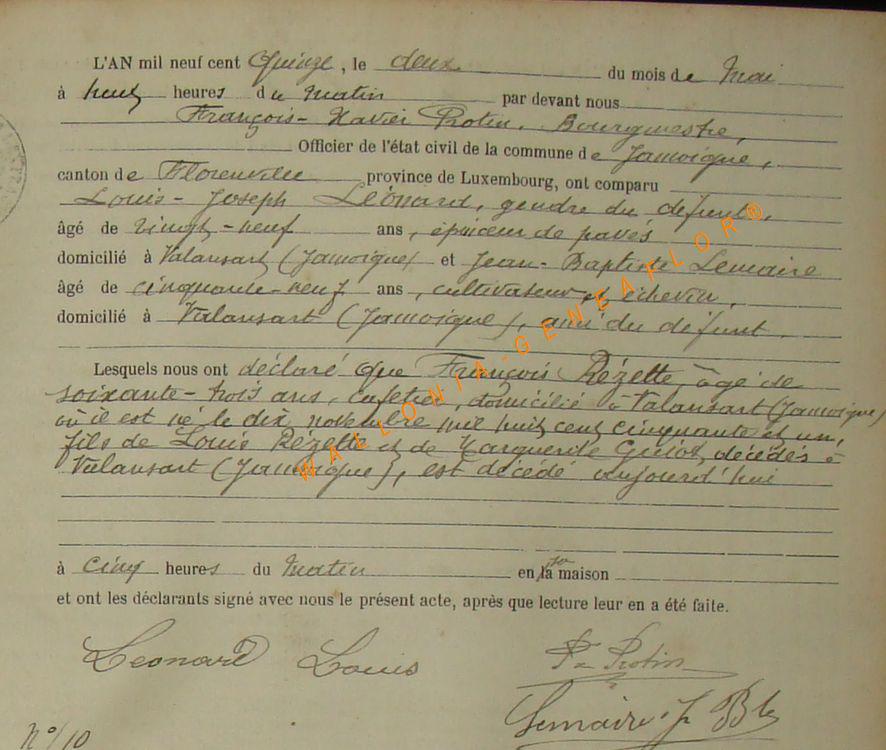 L'AN mil neuf cent Quinze, le deux du mois de Mai
à huit heures du matin par devant nous
François-Xavier Protin, Bourgmestre,
Officier de l'état civil de la commune de Jamoigne,
canton de Florenville province de Luxembourg, ont comparu
Louis-Joseph Léonard, gendre du défunt,
âgé de vingt-neuf ans, épinceur de pavés
domicilié à Valansart (Jamoigne) et Jean-Baptiste Lemaire
âgé de cinquante-neuf ans, cultivateur et échevin,
domicilié à Valansart (Jamoigne), ami du défunt
Lesquels nous ont déclaré que François Rézette, âgé de
soixante-trois ans, cafetier, domicilié à Valansart (Jamoigne)
où il est né le dix novembre mil huit cent cinquante et un,
fils de Louis Rézette et de Marguerite décédés à
Valansart (Jamoigne), est décédé aujourd'hui
à cinq heures du matin en la sa maison
et ont les déclarants signé avec nous le présent acte, après que lecture leur en a été faite.
Leonard Louis Protin
Lemaire J Bte
N° 10
WALLONIA-GENEAFLOR®